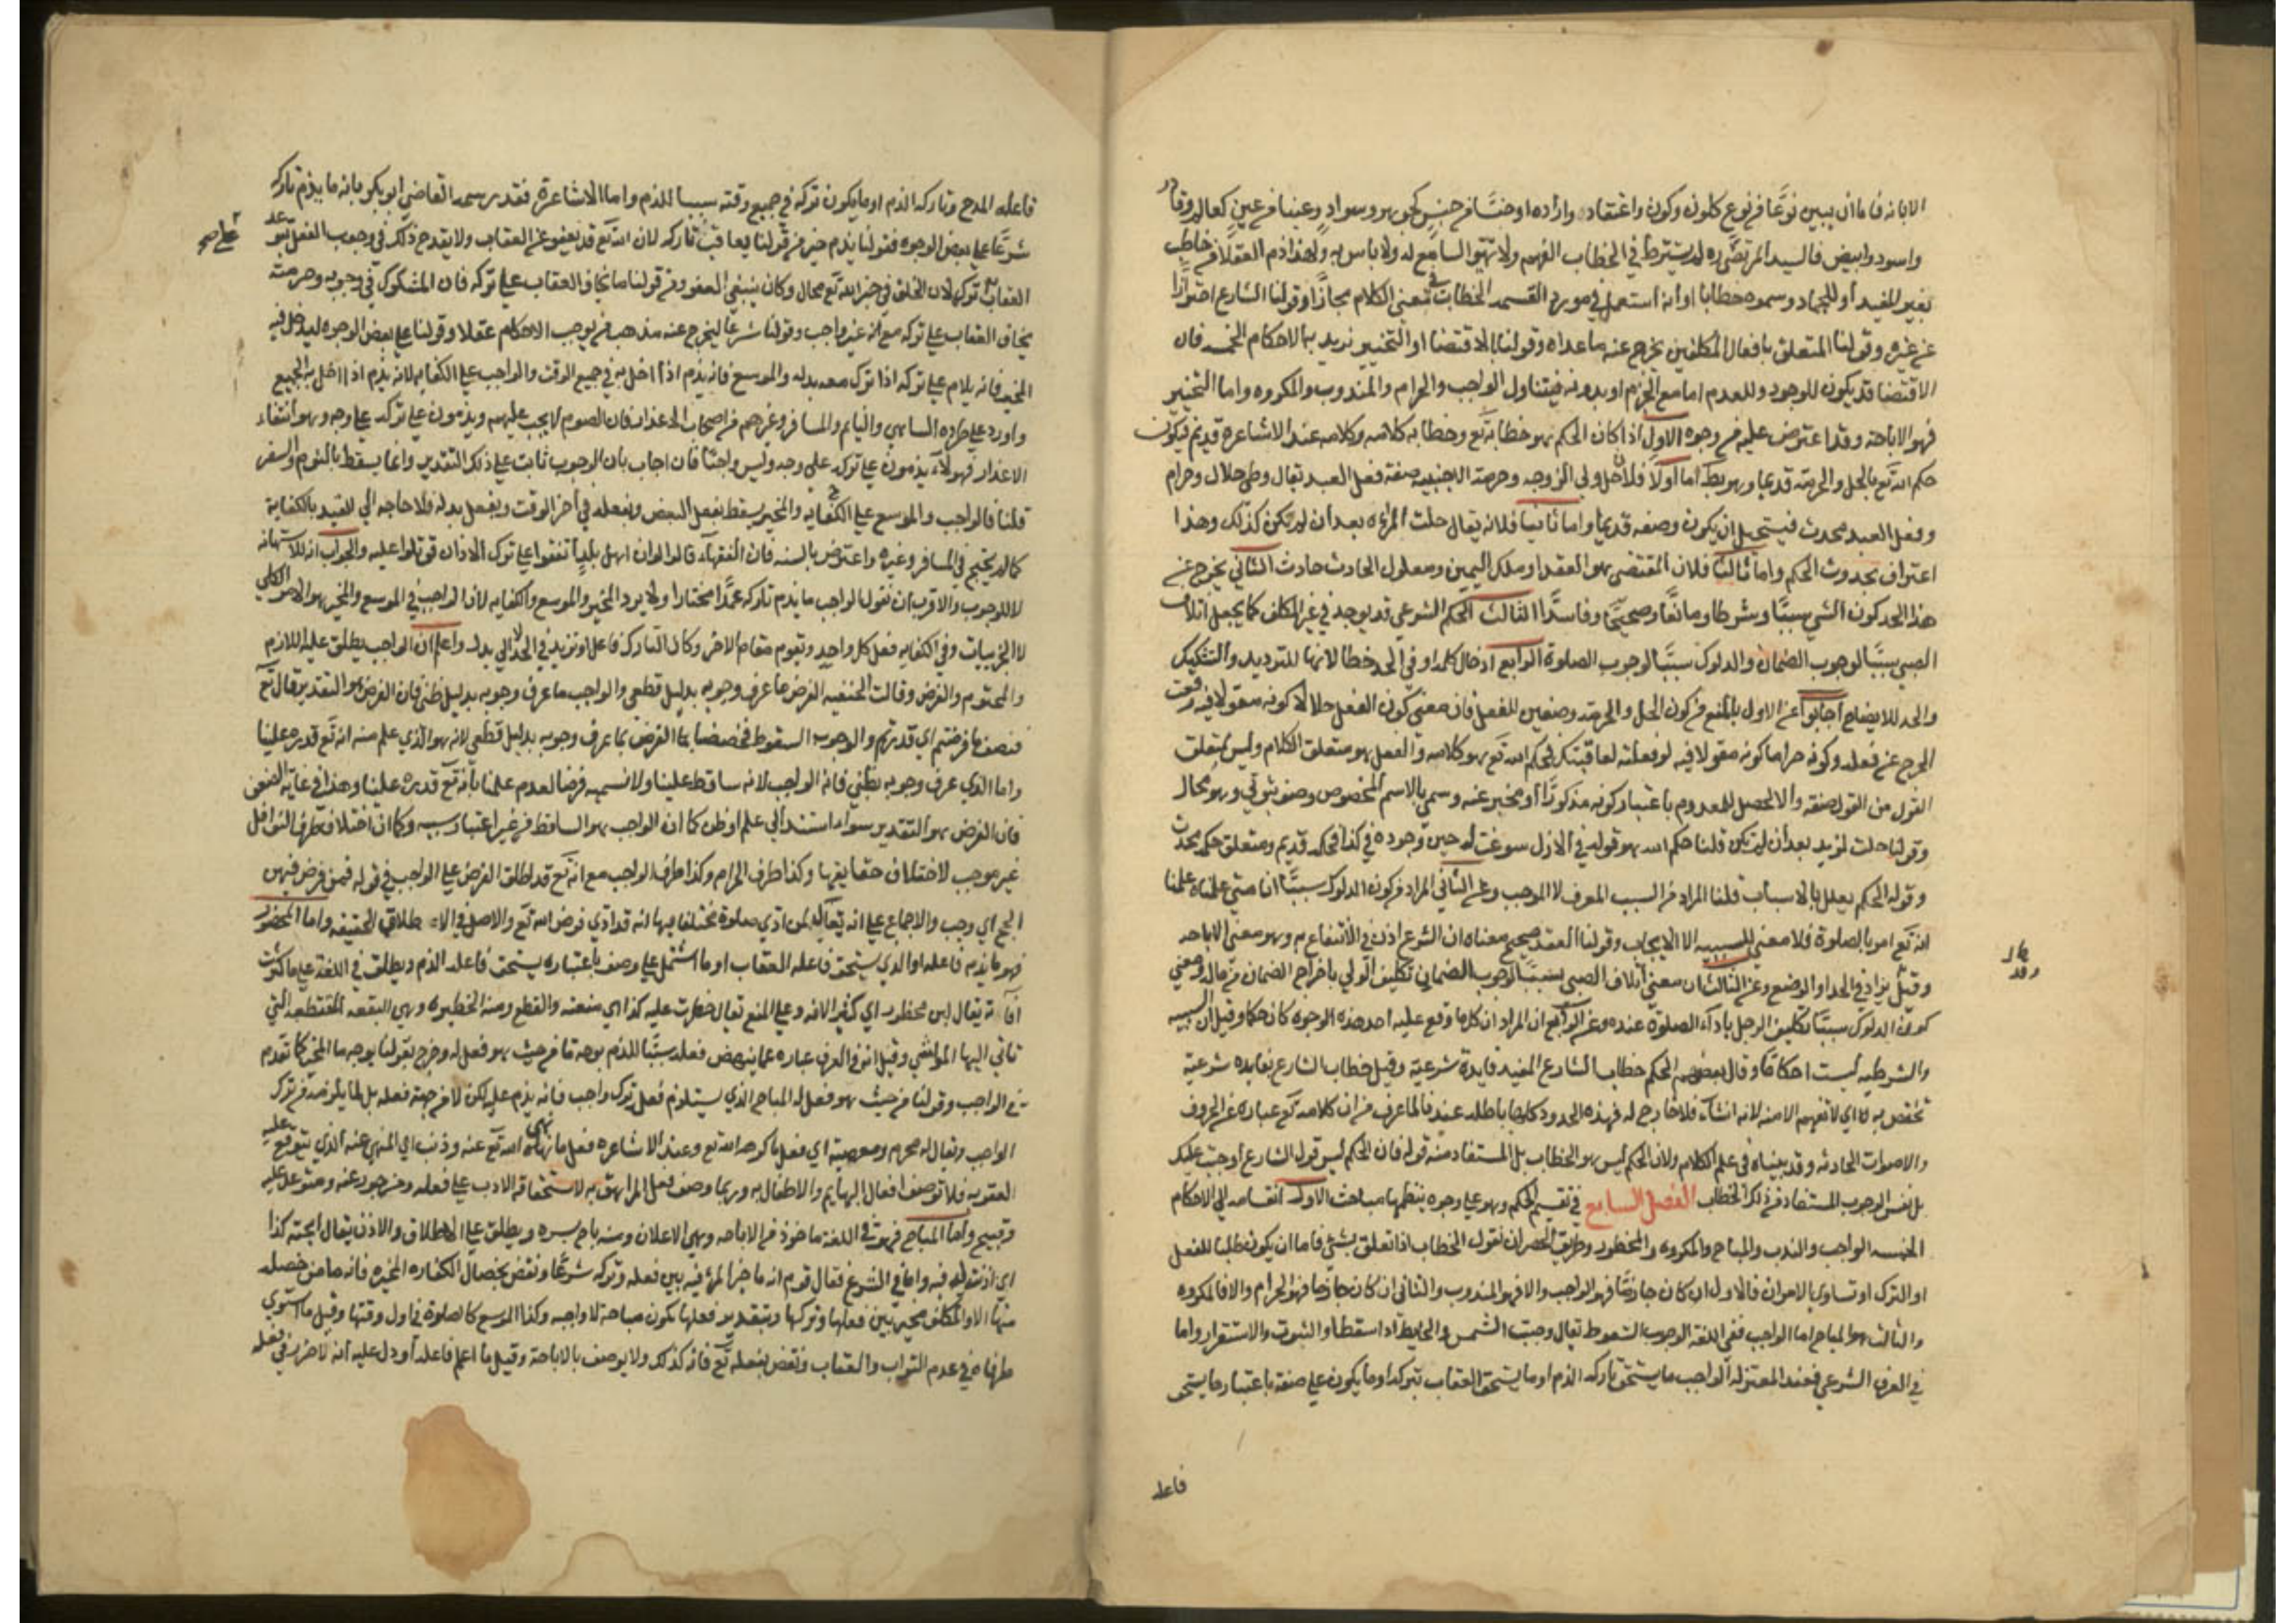 الابانه فاما ان يبين نوعًا من نوع كلون وكون واعتقاد وارادة او جنسًا من جنس كجوهر وسواد وعينا من عين كعالم وقادر
واسود وابيض قال السيد المرتضى ره لم يشترط في الخطاب الفهم ولا تهيؤ السامع له ولا باس به ولهذا ذم العقلا من خاطب
بغير المفيد او للجماد وسموه خطابا او انه استعمل في مورد القسمه الخطاب في معنى الكلام مجازًا وقولنا الشارع احترازًا
عن غيره وقولنا المتعلق بافعال المكلفين يخرج عنه ما عداه وقولنا بالاقتضا او التخيير نريد به الاحكام الخمسه فان
الاقتضا قد يكون للوجود وللعدم اما مع الجزم او بدونه فيتناول الواجب والحرام والمندوب والمكروه واما التخيير
فهو الاباحة وقد اعترض عليه من وجوه الاول اذا كان الحكم هو خطابه تع وخطابه كلامه وكلامه عند الاشاعرة قديم فيكون
حكم الله تع بالحل والحرمة قديما وهو بط اما اولا فلان حل وطى الزوجه وحرمة الاجنبيه صفة فعل العبد يقال وطى حلال وحرام
وفعل العبد محدث فيستحيل ان يكون وصفه قديما واما ثانيا فلانه يقال حلت المراه بعد ان لم تكن كذلك وهذا
اعتراف بحدوث الحكم واما ثالثا فلان المقتضى هو العقد او ملك اليمين ومعلول الحادث حادث الثاني يخرج عن
هذا الحد كون الشي سببًا وشرطا ومانعًا وصحيحًا وفاسدًا الثالث الحكم الشرعي قد يوجد في غير المكلف كما يجعل اتلاف
الصبي سببًا لوجوب الضمان والدلوك سببًا لوجوب الصلوة الرابع ادخال كلمة او في الحد خطا لانها للترديد والتشكيك
والحد للايضاح اجابوا عن الاول بالمنع من كون الحل والحرمه وصفين للفعل فان معنى كون الفعل حلالا كونه مقولا فيه رفعت
الحرج عن فعله وكونه حراما كونه مقولا فيه لو فعلته لعاقبتك فحكم الله تع هو كلامه والفعل هو متعلق الكلام وليس لمتعلق
القول من القول صفه والا لحصل للمعدوم باعتبار كونه مذكورًا او مخبر عنه ومسمى بالاسم المخصوص وصف ثبوتي وهو محال
وقولنا حلت لزيد بعد ان لم تكن قلنا حكم الله هو قوله في الازل سوغت له حين وجوده في كذا فحكمه قديم ومتعلق حكمه محدث
وقوله الحكم يعلل بالاسباب قلنا المراد من السبب المعرف لا الموجب وعن الثاني المراد من كون الدلوك سببًا انا متى علمناه علمنا
انه تع امر بالصلوة فلا معنى للسببيه الا الايجاب وقولنا العقد صحيح معناه ان الشرع اذن في الانتفاع به وهو معنى الاباحه
وقيل يزاد في الحد او الوضع وعن الثالث ان معنى اتلاف الصبي سببًا لوجوب الضمان تكليف الولي باخراج الضمان من ماله ومعنى
كون الدلوك سببًا تكليف الرجل باداء الصلوة عنده وعن الرابع ان المراد ان كلما وقع عليه احد هذه الوجوه كان حكما وقيل ان السببيه
والشرطيه ليست احكامًا وقال بعضهم الحكم خطاب الشارع المفيد فايدة شرعية وقيل خطاب الشارع بفايده شرعية
تختص به اي لا تفهم الا منه لانه انشاء فلا خارج له فهذه الحدود كلها باطله عندنا لما عرف من ان كلامه تع عباره عن الحروف
والاصوات الحادثه وقد بيناه في علم الكلام ولان الحكم ليس هو الخطاب بل المستفاد منه قوله فان الحكم ليس قول الشارع اوجبت عليك
بل نفس الوجوب المستفاد من ذلك الخطاب الفصل السابع في تقسيم الحكم وهو على وجوه ينظمها مباحث الاول انقسامه الى الاحكام
الخمسه الواجب والندب والمباح والمكروه والمحظور وطريق الحصر ان نقول الخطاب اذا تعلق بشئ فاما ان يكون طلبا للفعل
او الترك او تساوي الامران فالاول ان كان جازمًا فهو الواجب والا فهو المندوب والثاني ان كان جازمًا فهو الحرام والا فالمكروه
والثالث هو المباح اما الواجب ففي اللغة الوجوب السقوط يقال وجبت الشمس والحايط اذا سقطا والثبوت والاستقرار واما
في العرف الشرعي فعند المعتزله الواجب ما يستحق تاركه الذم او ما يستحق العقاب بتركه او ما يكون على صفة باعتبارها يستحق
فاعله
فاعله المدح وتاركه الذم او ما يكون تركه في جميع وقته سببا للذم واما الاشاعرة فقد رسمه القاضي ابو بكر بانه ما يذم تاركه
شرعًا على بعض الوجوه فقولنا يذم خير من قولنا يعاقب تاركه لان الله تع قد يعفو عن العقاب ولا يقدح ذلك في وجوب الفعل
العقاب على تركه لان الخلف في خبر الله تع محال وكان ينبغي العفو ومن قولنا ما يخاف العقاب على تركه فان المشكوك في وجوبه وحرمته
يخاف العقاب على تركه مع انه غير واجب وقولنا شرعا ليخرج عنه مذهب من يوجب الاحكام عقلا وقولنا على بعض الوجوه ليدخل فيه
المخير فانه يلام على تركه اذا ترك معه بدله والموسع فانه يذم اذا اخل به في جميع الوقت والواجب على الكفايه لانه يذم اذا اخل به الجميع
واورد على طرده الساهي والنايم والمسافر وغيرهم من اصحاب الاعذار فان الصوم لا يجب عليهم ويذمون على تركه على وجه وهو انتفاء
الاعذار فهولاء يذمون على تركه على وجه وليس واجبًا فان اجاب بان الوجوب ثابت على ذلك التقدير وانما يسقط بالنوم والسفر
قلنا فالواجب والموسع على الكفايه والمخير يسقط بفعل البعض وبفعله في اخر الوقت وبفعل بدله فلا حاجه الى التقييد بالكفاية
كما لم يحتج في المسافر وغيره واعترض بالسنه فان الفقهاء قالوا لو ان اهل بلد اتفقوا على ترك الاذان قوتلوا عليه والجواب انه للاستهانه
لا للوجوب والاقرب ان نقول الواجب ما يذم تاركه عمدًا مختارا ولا يرد المخير والموسع والكفايه لان الواجب في الموسع والمخير هو الامر الكلي
لا الجزييات وفي الكفايه فعل كل واحد ويقوم مقام الاخر وكان التارك فاعل او نزيد في الحد لا الى بدل واعلم ان الواجب يطلق عليه اللازم
والمحتوم والفرض وقالت الحنفيه الفرض ما عرف وجوبه بدليل قطعي والواجب ما عرف وجوبه بدليل ظني فان الفرض هو التقدير قال تع
فنصف ما فرضتم اي قدرتم والوجوب السقوط فخصصنا الفرض بما عرف وجوبه بدليل قطعي لانه هو الذي علم منه انه تع قدره علينا
واما الذي عرف وجوبه بظني فانه الواجب لانه ساقط علينا ولا نسميه فرضا لعدم علمنا بانه تع قدره علينا وهذا في غاية الضعف
فان الفرض هو التقدير سواء استند الى علم او ظن كما ان الواجب هو الساقط من غير اعتبار سببه وكما ان اختلاف طرق النوافل
غير موجب لاختلاف حقايقها وكذا طرق الحرام وكذا طرق الواجب مع انه تع قد اطلق الفرض على الواجب في قوله فمن فرض فيهن
الحج اي وجب والاجماع على انه يقال لمن ادى صلوة مختلفا فيها انه قد ادى فرض الله تع والاصل في الاطلاق الحقيقه واما المحظور
فهو ما يذم فاعله او الذي يستحق فاعله العقاب او ما اشتمل على وصف باعتباره يستحق فاعله الذم ويطلق في اللغة على ما كثرت
افاته يقال لبن محظور اي كثير الافه وعلى المنع يقال حظرت عليه كذا اي منعته والقطع ومنه الحظيره وهي البقعه المقتطعه التي
تاتي اليها المواشي وقيل انه في العرف عباره عما ينهض فعله سببًا للذم بوجه ما من حيث هو فعل له وخرج بقولنا بوجه ما المخير كما تقدم
في الواجب وقولنا من حيث هو فعل له المباح الذي يستلزم فعله ترك واجب فانه يذم عليه لكن لا من جهة فعله بل لما يلزمه من ترك
الواجب ويقال له محرم ومعصية اي فعل ما كرهه الله تع وعند الاشاعره فعل ما نهى الله تع عنه وذنب اي المنهي عنه الذي يتوقع عليه
العقوبه فلا توصف افعال البهايم والاطفال به وربما وصف فعل المراهق به لاستحقاقه الادب على فعله ومزجور عنه ومتوعد عليه
وقبيح واما المباح فهو في اللغة ماخوذ من الاباحه وهي الاعلان ومنه باح بسره ويطلق على الاطلاق والاذن يقال ابحته كذا
اي اذنت له فيه واما في الشرع فقال قوم انه ما خير المرء فيه بين فعله وتركه شرعًا ونقض بخصال الكفاره المخيره فانه ما من خصله
منها الا والمكلف مخير بين فعلها وتركها وبتقدير فعلها يكون مباحة لا واجبه وكذا الموسع كالصلوة في اول وقتها وقيل ما استوى
طرفاه في عدم الثواب والعقاب ونقض بفعله تع فانه كذلك ولا يوصف بالاباحة وقيل ما اعلم فاعله او دل عليه انه لا ضرر في فعله